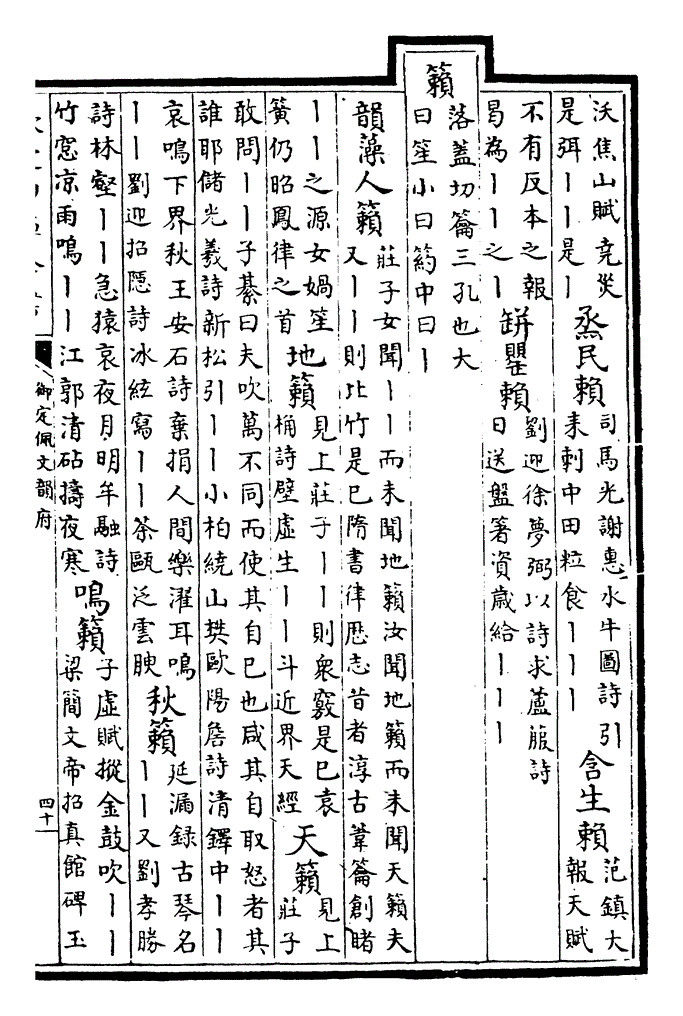 沃焦山賦堯災
是弭丨丨是丨
烝民賴
司馬光謝惠水牛圖詩引
耒刺中田粒食丨丨丨
含生賴
范鎮大
報天賦
不有反本之報
曷為丨丨之丨
缾罌賴
劉迎徐夢弼以詩求蘆菔詩
日送盤箸資歲給丨丨丨
籟
落蓋切籥三孔也大
曰笙小曰箹中曰丨
韻藻
人籟
莊子女聞丨丨而未聞地籟汝聞地籟而未聞天籟夫
又丨丨則比竹是已隋書律歷志昔者淳古葦籥創睹
丨丨之源女媧笙
簧仍昭鳳律之首
地籟
見上莊子丨丨則衆竅是已袁
桷詩壁虛生丨丨斗近界天經
天籟
見上
莊子
敢問丨丨子綦曰夫吹萬不同而使其自已也咸其自取怒者其
誰耶儲光羲詩新松引丨丨小柏繞山樊歐陽詹詩清鐸中丨丨
哀鳴下界秋王安石詩棄捐人間樂濯耳鳴
丨丨劉迎招隱詩冰絃寫丨丨茶甌泛雲腴
秋籟
延漏録古琴名
丨丨又劉孝勝
詩林壑丨丨急猿哀夜月明牟融詩
竹窓凉雨鳴丨丨江郭清砧擣夜寒
鳴籟
子虛賦摐金鼓吹丨丨
梁簡文帝招真館碑玉
御定佩文韻府
四十一